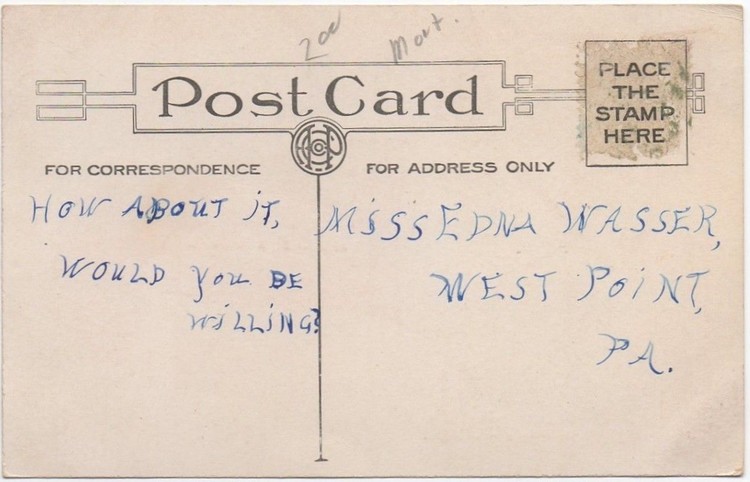 Mont.
Post Card
PLACE
THE
STAMP
HERE
FOR CORRESPONDENCE
FOR ADDRESS ONLY
HOW ABOUT IT,
WOULD YOU BE
WILLING?
MISS EDNA WASSER,
WEST POINT,
PA.